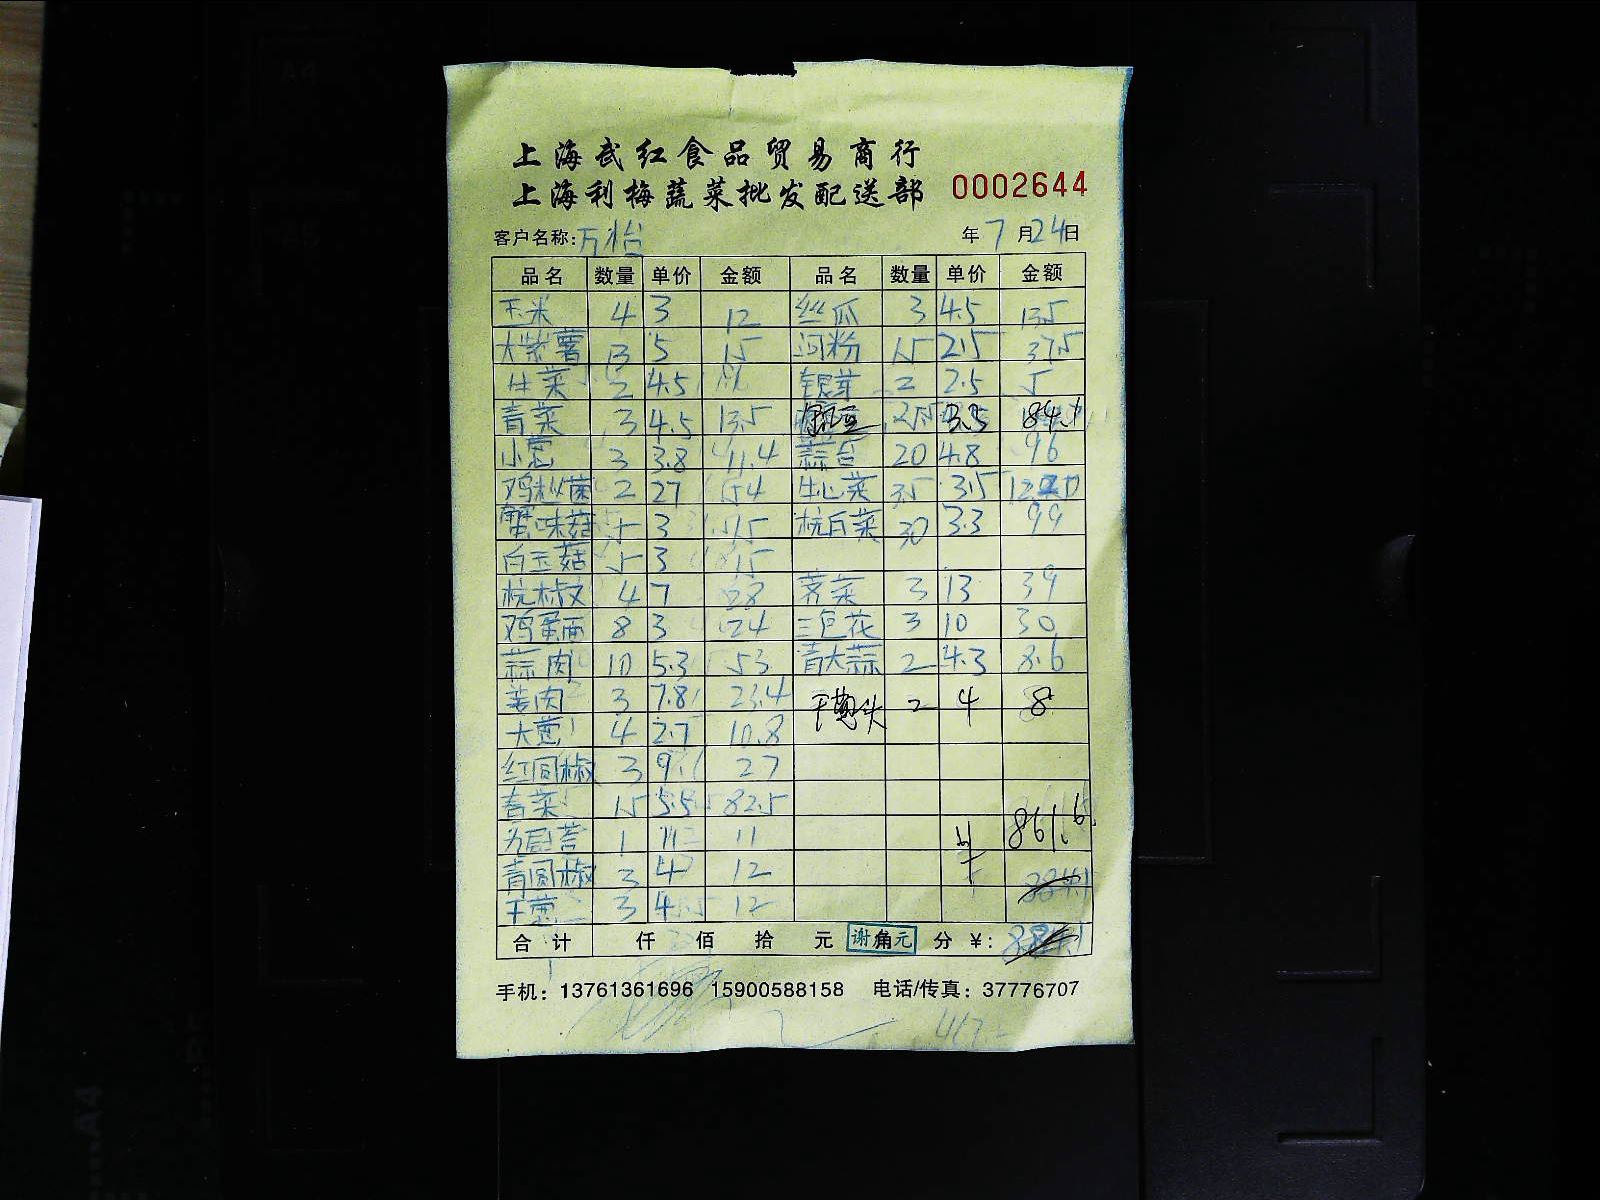 上海武红食品贸易商行
上海利梅蔬菜批发配送部 0002644
客户名称:万怡 年7月24日
品名 数量 单价 金额 品名 数量 单价 金额
玉米 4 3 12 丝瓜 3 4.5 13.5
大紫薯 3 5 15 河粉 15 2.5 37.5
生菜 2 4.5 银芽 2 2.5 5
青菜 3 4.5 13.5 3.5 84.1
小葱 3 3.8 11.4 蒜台 20 4.8 96
鸡枞菌 2 27 54 生心菜 35 3.5
蟹味菇 5 3 15 杭白菜 30 3.3 99
白玉菇 5 3 15
杭椒 4 7 28 荠菜 3 13 39
鸡蛋面 8 3 24 三色花 3 10 30
蒜肉 10 5.3 53 青大蒜 2 4.3 8.6
姜肉 3 7.8 23.4 干葱头 2 4 8
大葱 4 2.7 10.8
红圆椒 3 9 27
春菜 15 5.5 82.5
1 11 11 861.6
青圆椒 3 4 12
干葱 3 4 12
合计 仟 佰 拾 元 谢角元 分 ¥:
手机:13761361696 15900588158 电话/传真:37776707